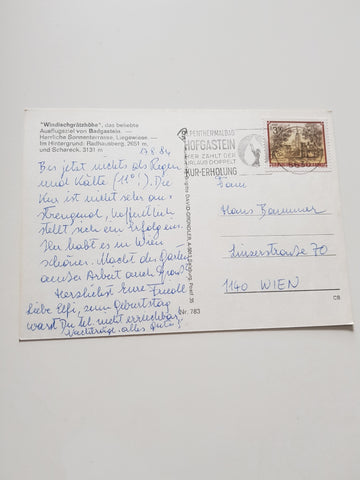 "Windischgrätzhöhe", das beliebte
Ausflugsziel von Badgastein. —
Herrliche Sonnenterrasse, Liegewiese. —
Im Hintergrund: Radhausberg, 2651 m
und Schareck, 3131 m
8.84
Bis jetzt nichts als Regen
und Kälte (11°!). Die
Kur ist nicht sehr an-
strengend, hoffentlich
stellt sich ein Erfolg ein.
Ihr habt es in Wien
schöner. Macht der Garten
außer Arbeit auch
Herzlichst Eure Friedl
Liebe Elfi, zum Geburtstag
warst Du tel. nicht erreichbar,
Nachträgl. alles Gute!
THERMALBAD
HOFGASTEIN
HIER ZÄHLT DER
URLAUB DOPPELT
KUR-ERHOLUNG
5630
Fam.
Hans
Linzerstraße 70
1140 WIEN
Nr. 783
CB